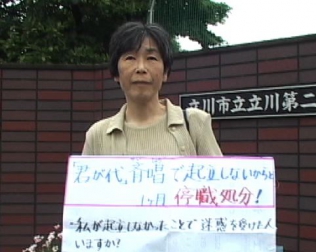 立川市立立川第二
「君が代」斉唱で起立しないからと
1ヶ月 停職処分!
私が起立しなかったことで迷惑を受けた人
いますか?